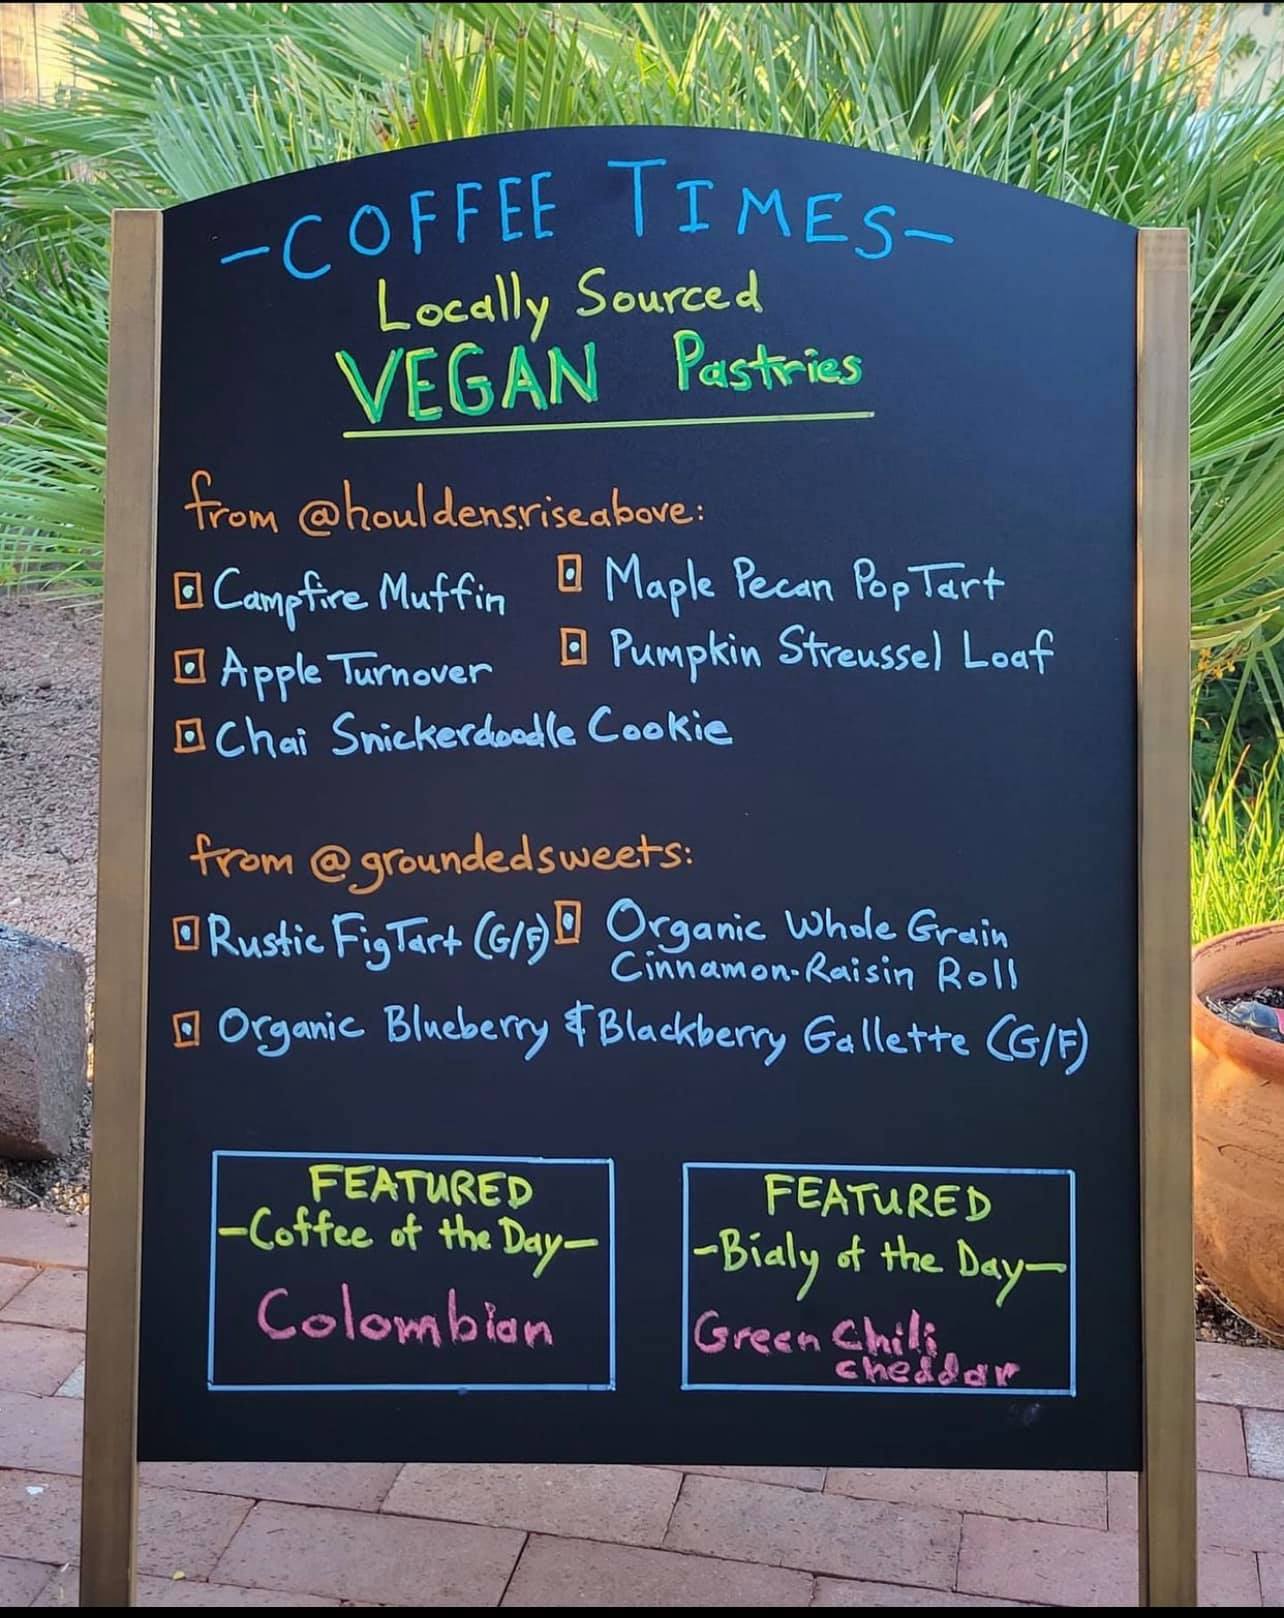 -COFFEE TIMES-
Locally Sourced
VEGAN Pastries
from @houldensriseabove:
Campfire Muffin
Maple Pecan Pop Tart
Apple Turnover
Pumpkin Streussel Loaf
Chai Snickerdoodle Cookie
from @groundedsweets:
Rustic Fig Tart (G/F)
Organic Whole Grain
Cinnamon-Raisin Roll
Organic Blueberry & Blackberry Gallette (G/F)
FEATURED
-Coffee of the Day-
Colombian
FEATURED
-Bialy of the Day-
Green Chili
cheddar